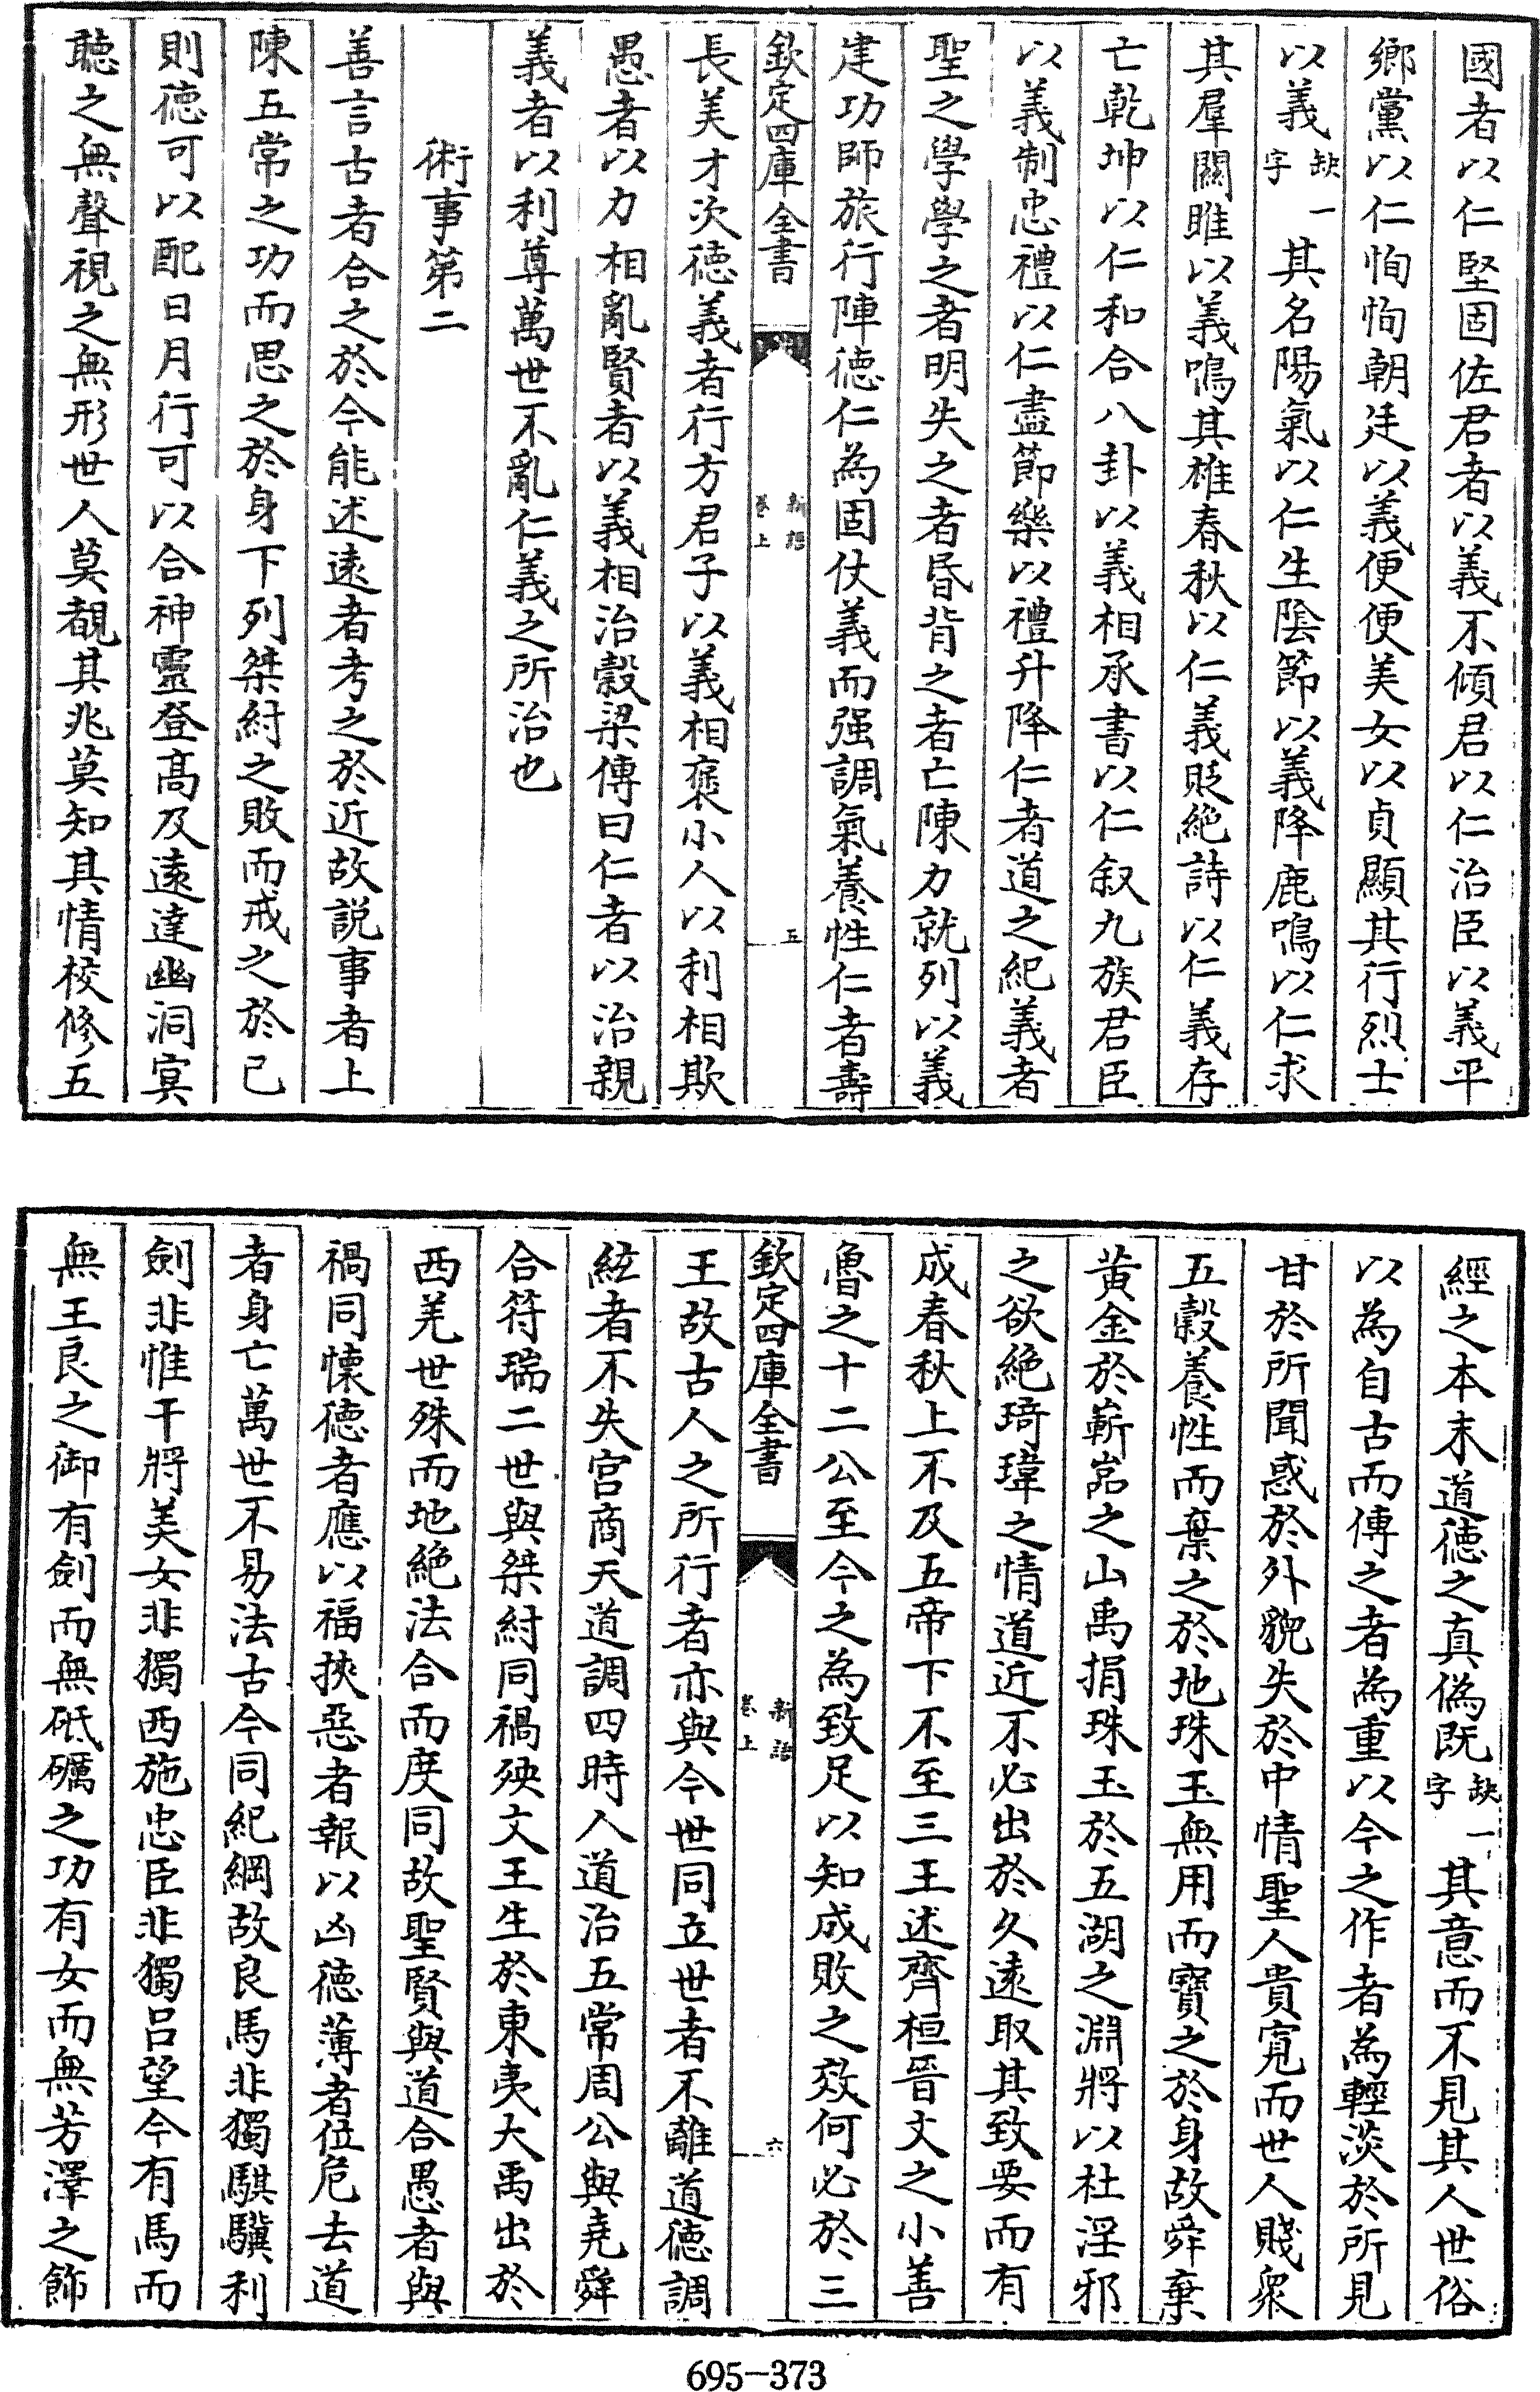 國者以仁堅固佐君者以義不傾君以仁治臣以義平
鄉黨以仁恂恂朝廷以義便便美女以貞顯其行烈士
以義缺一字其名陽氣以仁生陰節以義降鹿鳴以仁求
其羣關雎以義鳴其雄春秋以仁義貶絶詩以仁義存
亡乾坤以仁和合八卦以義相承書以仁叙九族君臣
以義制忠禮以仁盡節樂以禮升降仁者道之紀義者
聖之學學之者明失之者昏背之者亡陳力就列以義
建功師旅行陣徳仁為固仗義而强調氣養性仁者壽
欽定四庫全書
新語
卷上
五
長美才次徳義者行方君子以義相褒小人以利相欺
愚者以力相亂賢者以義相治穀梁傳曰仁者以治親
義者以利尊萬世不亂仁義之所治也
術事第二
善言古者合之於今能述遠者考之於近故説事者上
陳五常之功而思之於身下列桀紂之敗而戒之於己
則徳可以配日月行可以合神靈登髙及遠達幽洞㝠
聽之無聲視之無形世人莫覩其兆莫知其情校修五
經之本末道徳之真偽既缺一字其意而不見其人世俗
以為自古而傳之者為重以今之作者為輕淡於所見
甘於所聞惑於外貌失於中情聖人貴寛而世人賤衆
五穀養性而棄之於地珠玉無用而寶之於身故舜棄
黄金於嶄嵓之山禹捐珠玉於五湖之淵將以杜淫邪
之欲絶琦瑋之情道近不必出於久遠取其致要而有
成春秋上不及五帝下不至三王述齊桓晉文之小善
魯之十二公至今之為致足以知成敗之效何必於三
欽定四庫全書
新語
卷上
六
王故古人之所行者亦與今世同立世者不離道徳調
絃者不失宫商天道調四時人道治五常周公與堯舜
合符瑞二世與桀紂同禍殃文王生於東夷大禹出於
西羌世殊而地絶法合而度同故聖賢與道合愚者與
禍同懐徳者應以福挾惡者報以凶徳薄者位危去道
者身亡萬世不易法古今同紀綱故良馬非獨騏驥利
劍非惟干將美女非獨西施忠臣非獨吕望今有馬而
無王良之御有劍而無砥礪之功有女而無芳澤之飾
695-373